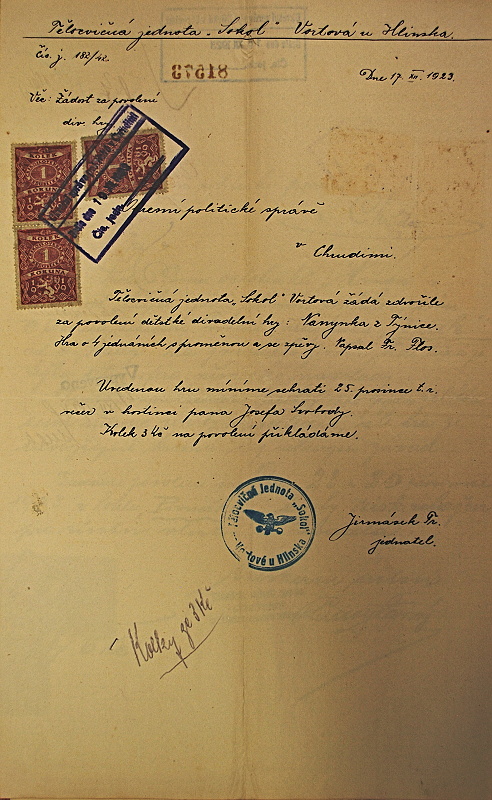 Tělocvičná jednota „Sokol“ Vortová u Hlinska.
Čís. j. 182/42.
81573
Dne 17. XII. 1923.
Věc: Žádost za povolení
div. hry
KOLEK
1
KORUNA
KOLEK
1
KORUNA
Čís. jedn.
politické správě
v Chrudimi.
Tělocvičná jednota „Sokol“ Vortová žádá zdvořile
za povolení dětské divadelní hry: Nanynka z Týnice.
Hra o 4 jednáních, s proměnou a se zpěvy. Napsal Fr. Plos.
Uvedenou hru míníme sehrati 25. prosince t. r.
večer v hostinci pana Josefa Svobody.
Kolek 3 Kč na povolení přikládáme.
Tělocvičná Jednota „Sokol“
Vortové u Hlinska
Jirmásek Fr.
jednatel.
Kolky ze 3 Kč